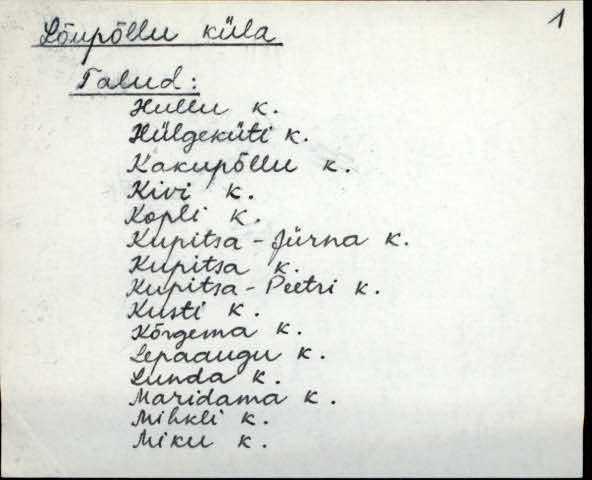 1
Lõupõllu küla
Talud:
Hullu k.
Hülgeküti k.
Kakupõllu k.
Kivi k.
Kopli k.
Kupitsa - Jürna k.
Kupitsa k.
Kupitsa - Peetri k.
Kusti k.
Kõrgema k.
Lepaaugu k.
Lunda k.
Maridama k.
Mihkli k.
Miku k.